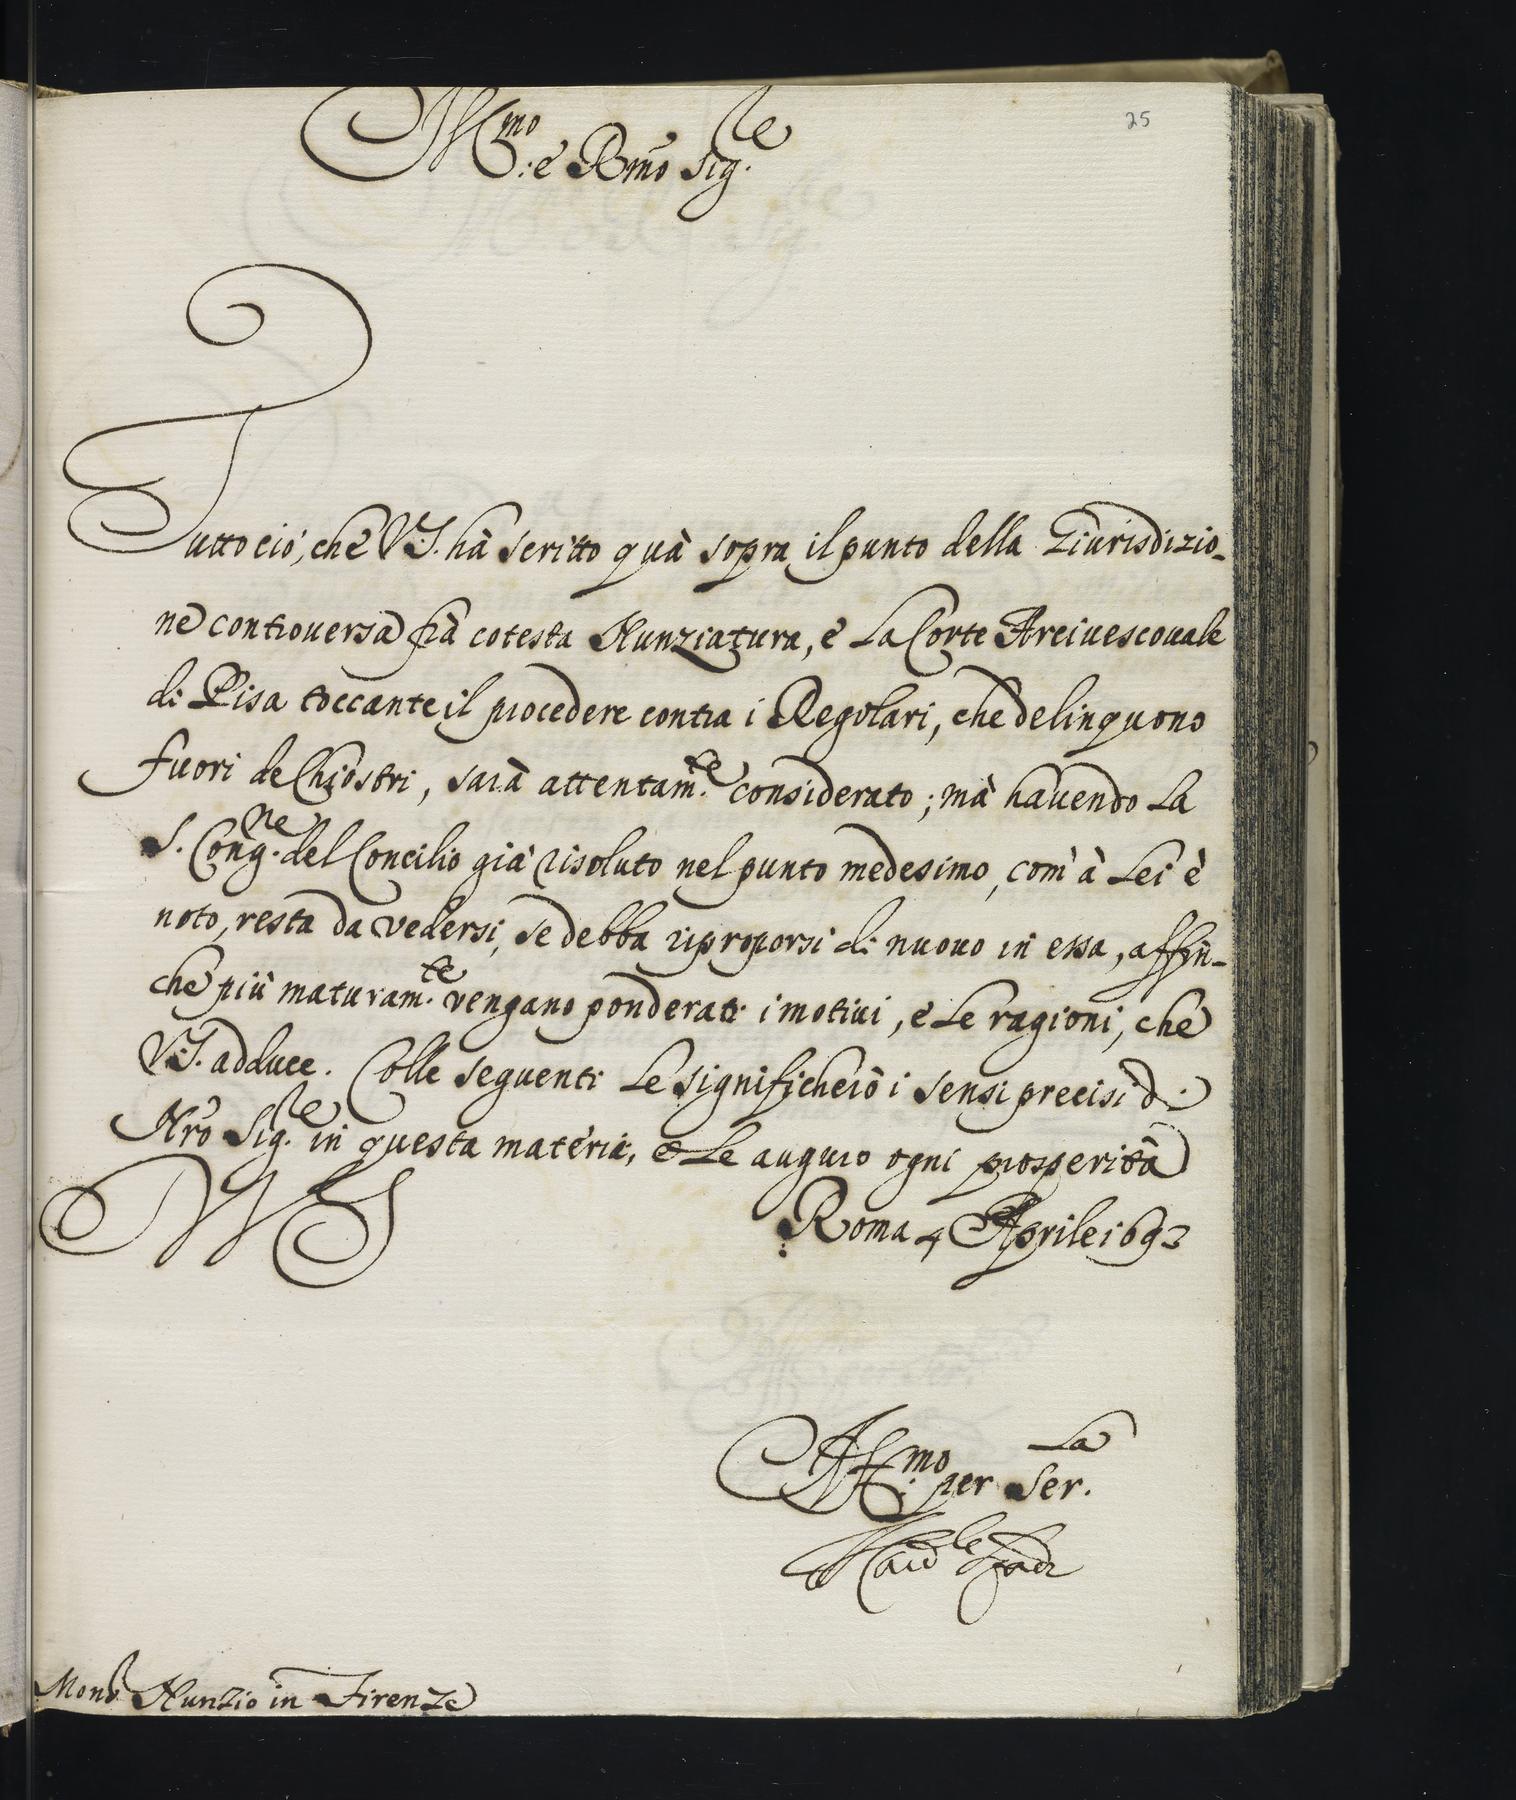 25
Ill.mo e Rmo Sig.re
Tutto ciò, che V.S. hà scritto quà sopra il punto della Giurisdizio-
ne controversa frà cotesta Nunziatura, e la Corte Arcivescovale
di Pisa toccante il procedere contra i Regolari, che delinquono
fuori de Chiostri, sarà attentam.te considerato; mà havendo la
S. Cong.ne del Concilio già risoluto nel punto medesimo, com' à Lei è
noto, resta da vedersi, se debba riproporsi di nuovo in essa, affin-
che più maturam.te vengano ponderati i motivi, e le ragioni, che
V.S. adduce. Colle seguenti le significherò i sensi precisi di
Nrō Sig.re in questa materia, e Le auguro ogni prosperità
Roma 4 Aprile 1693
Aff.mo per Ser.la
Mons.r Nunzio in Firenze